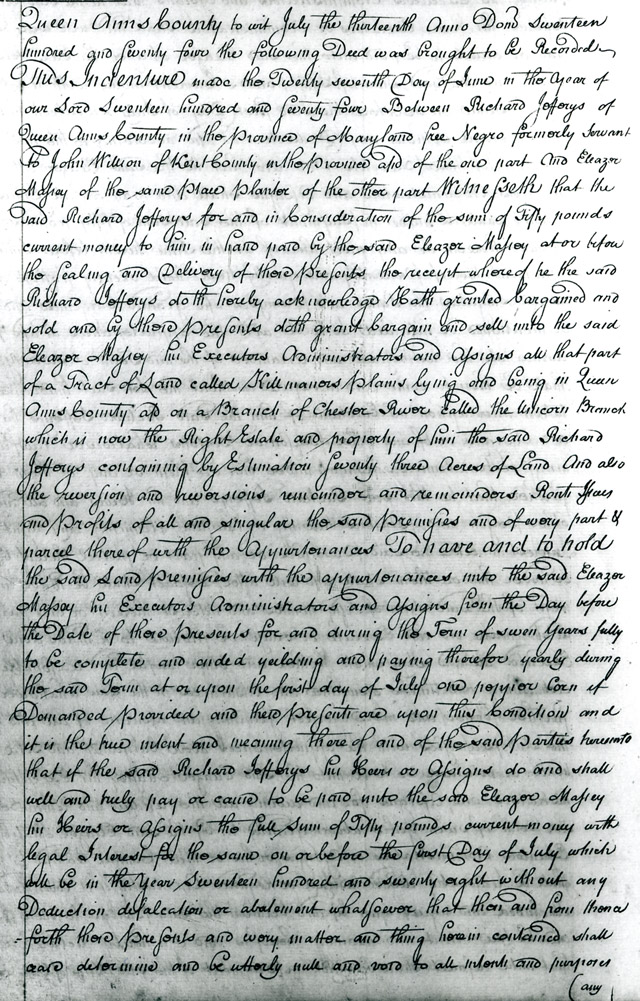 Queen Anns County to wit July the thirteenth Anno Dond Seventeen
hundred and Seventy four the following Deed was brought to be Recorded
This Indenture made the Twenty seventh Day of June in the Year of
our Lord Seventeen hundred and Seventy four Between Richard Jefferys of
Queen Anns County in the Province of Maryland free Negro formerly Servant
to John Willson of Kent County in the Province afd of the one part And Eleazer
Massey of the same place Planter of the other part Witnesseth that the
said Richard Jefferys for and in Consideration of the sum of Fifty pounds
current money to him in hand paid by the said Eleazer Massey at or before
the sealing and Delivery of these Presents the receipt whereof he the said
Richard Jefferys doth hereby acknowledge Hath granted bargained and
sold and by these Presents doth grant bargain and sell unto the said
Eleazer Massey his Executors Administrators and Assigns all that part
of a Tract of Land called Killmanors Plains lying and being in Queen
Anns County afd on a Branch of Chester River called the Unicorn Branch
which is now the Right Estate and property of him the said Richard
Jefferys containing by Estimation Seventy three Acres of Land And also
the reversion and reversions remainder and remainders Rents Issues
and Profits of all and singular the said Premisses and of every part &
parcel thereof with the Appurtenances To have and to hold
the said Land Premisses with the appurtenances unto the said Eleazer
Massey his Executors Administrators and Assigns from the Day before
the Date of these Presents for and during the Term of seven Years fully
to be compleate and ended yeilding and paying therefor yearly during
the said Term at or upon the first day of July one pepper Corn if
Demanded Provided and these Presents are upon this Condition and
it is the true intent and meaning thereof and of the said Parties hereunto
that if the said Richard Jefferys his Heirs or Assigns do and shall
well and truly pay or cause to be paid unto the said Eleazer Massey
his Heirs or Assigns the full Sum of Fifty pounds current money with
legal Interest for the same on or before the first Day of July which
will be in the Year Seventeen hundred and seventy eight without any
Deduction defalcation or abatement whatsoever that then and from thence
-forth these Presents and every matter and thing herein contained shall
cease determine and be utterly null and void to all intents and purposes
(any